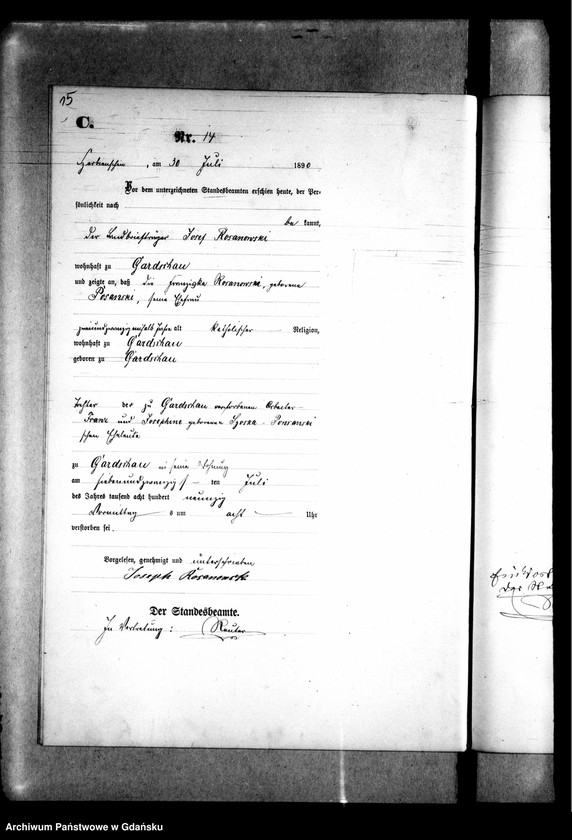 15
C.
Nr. 14
am 30 Juli 1890
Vor dem unterzeichneten Standesbeamten erschien heute, der Per-
sönlichkeit nach
be kannt,
der Landbriefträger Josef Rosanowski
wohnhaft zu Gardschau
und zeigte an, daß die Franziska Rosanowski, geborene
seine Ehefrau
zweiundzwanzig einhalb Jahre alt katholischer Religion,
wohnhaft zu Gardschau
geboren zu Gardschau
Tochter der zu Gardschau verstorbenen Arbeiter
Franz und Josephine geborene
schen Eheleute
zu Gardschau in seine Wohnung
am siebenundzwanzigs ten Juli
des Jahres tausend acht hundert neunzig
Vormittag s um acht Uhr
verstorben sei.
Vorgelesen, genehmigt und unterschrieben
Joseph Rosanowski
Der Standesbeamte.
In Vertretung: Reuter
Archiwum Państwowe w Gdańsku